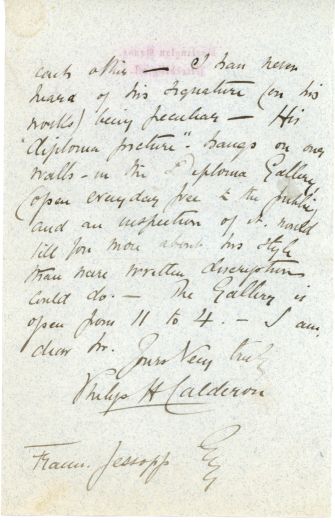 each other — I have never
heard of his signature (on his
works) being peculiar — His
"diploma picture" hangs on our
walls — in the Diploma Gallery
(open everyday free to the public)
and an inspection of it would
tell you more about his style
than mere written description
could do. — The Gallery is
open from 11 to 4. — I am
dear Sir
Yours Very truly
Philip H Calderon
Jessopp Esq